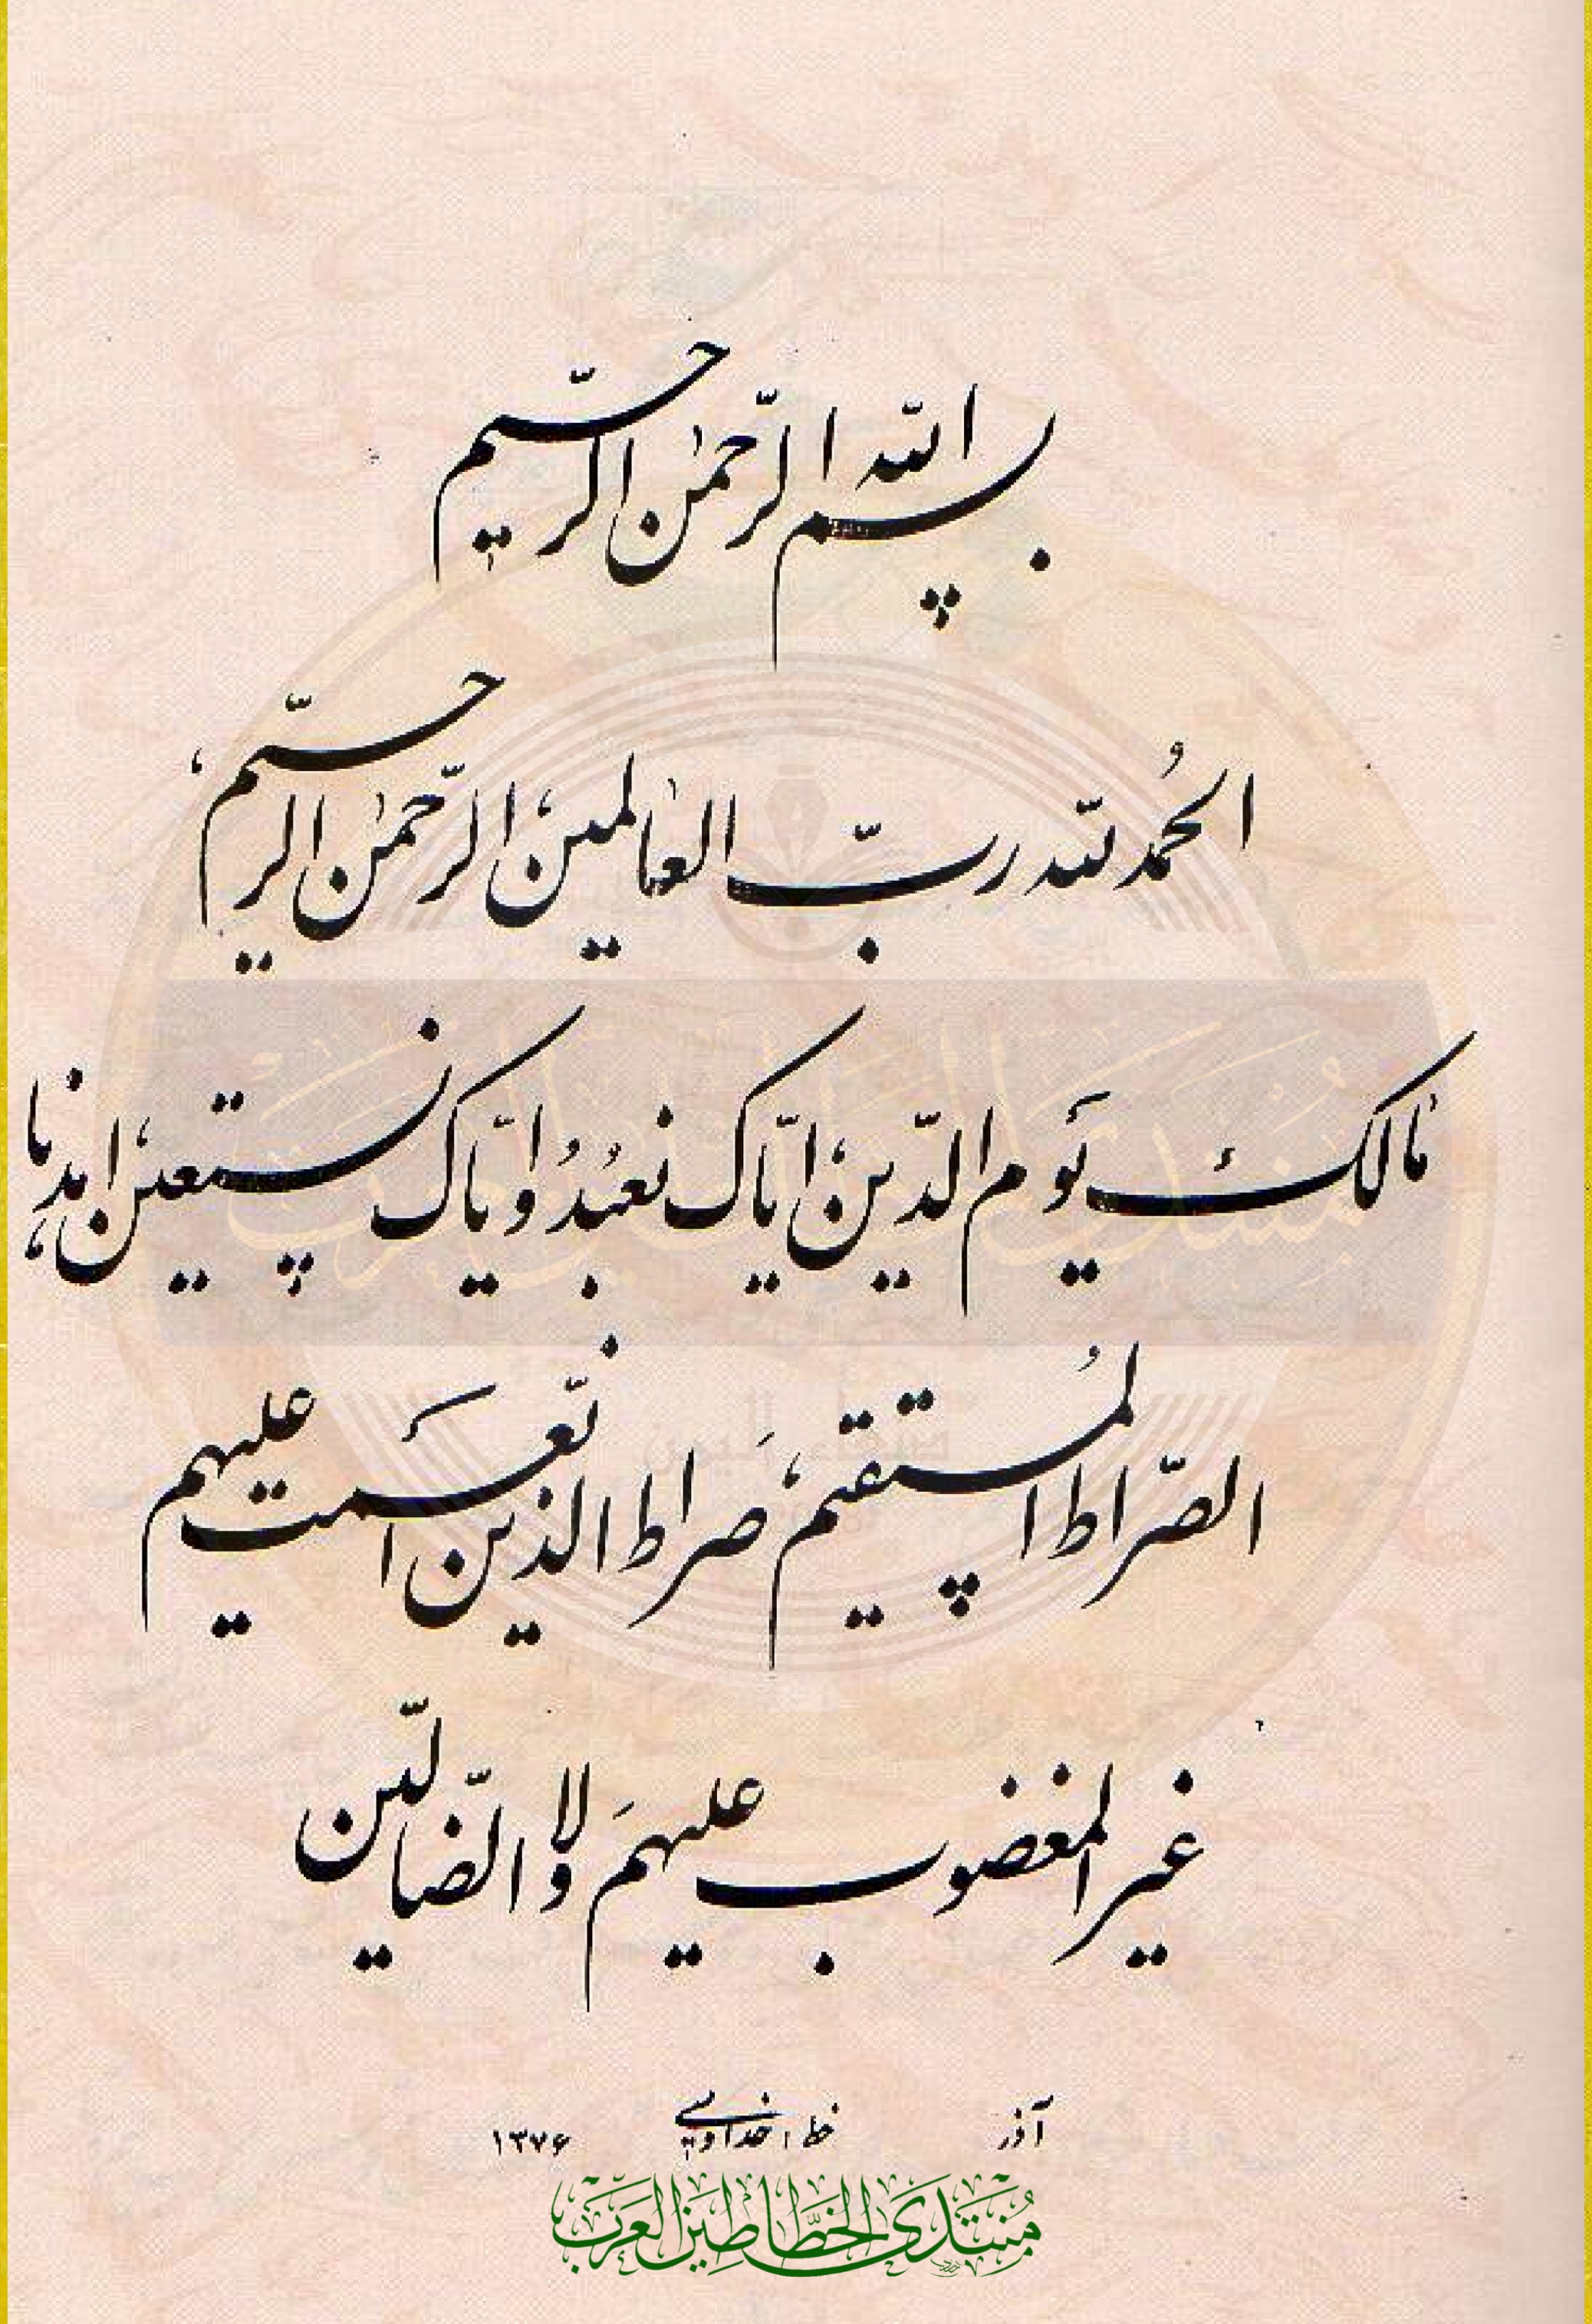 بسم الله الرّحمٰن الرّحيم
الحمدُ لله ربّ العٰالمين، الرّحمٰن الرّحيم،
مٰالك يَوم الدّين، ايّاك نعبُدُ و ايّاك نستعين، اهدنا
الصّراط المُستقيمَ، صراط الذين انعمتَ عليهم
غير المغضوب عليهمَ ولا الضّالّين
آذر خط، خداویی ۱۳۷۶
مُنتَدَى الخَطَّاطِينَ العَرَب